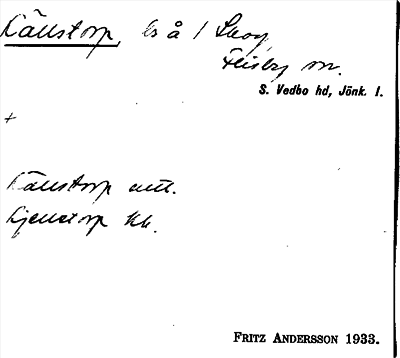 Källstorp, ls å / Skog,
Flisby sn.
S. Vedbo hd, Jönk. l.
+
Källstorp
Kjellstorp kk.
FRITZ ANDERSSON 1933.